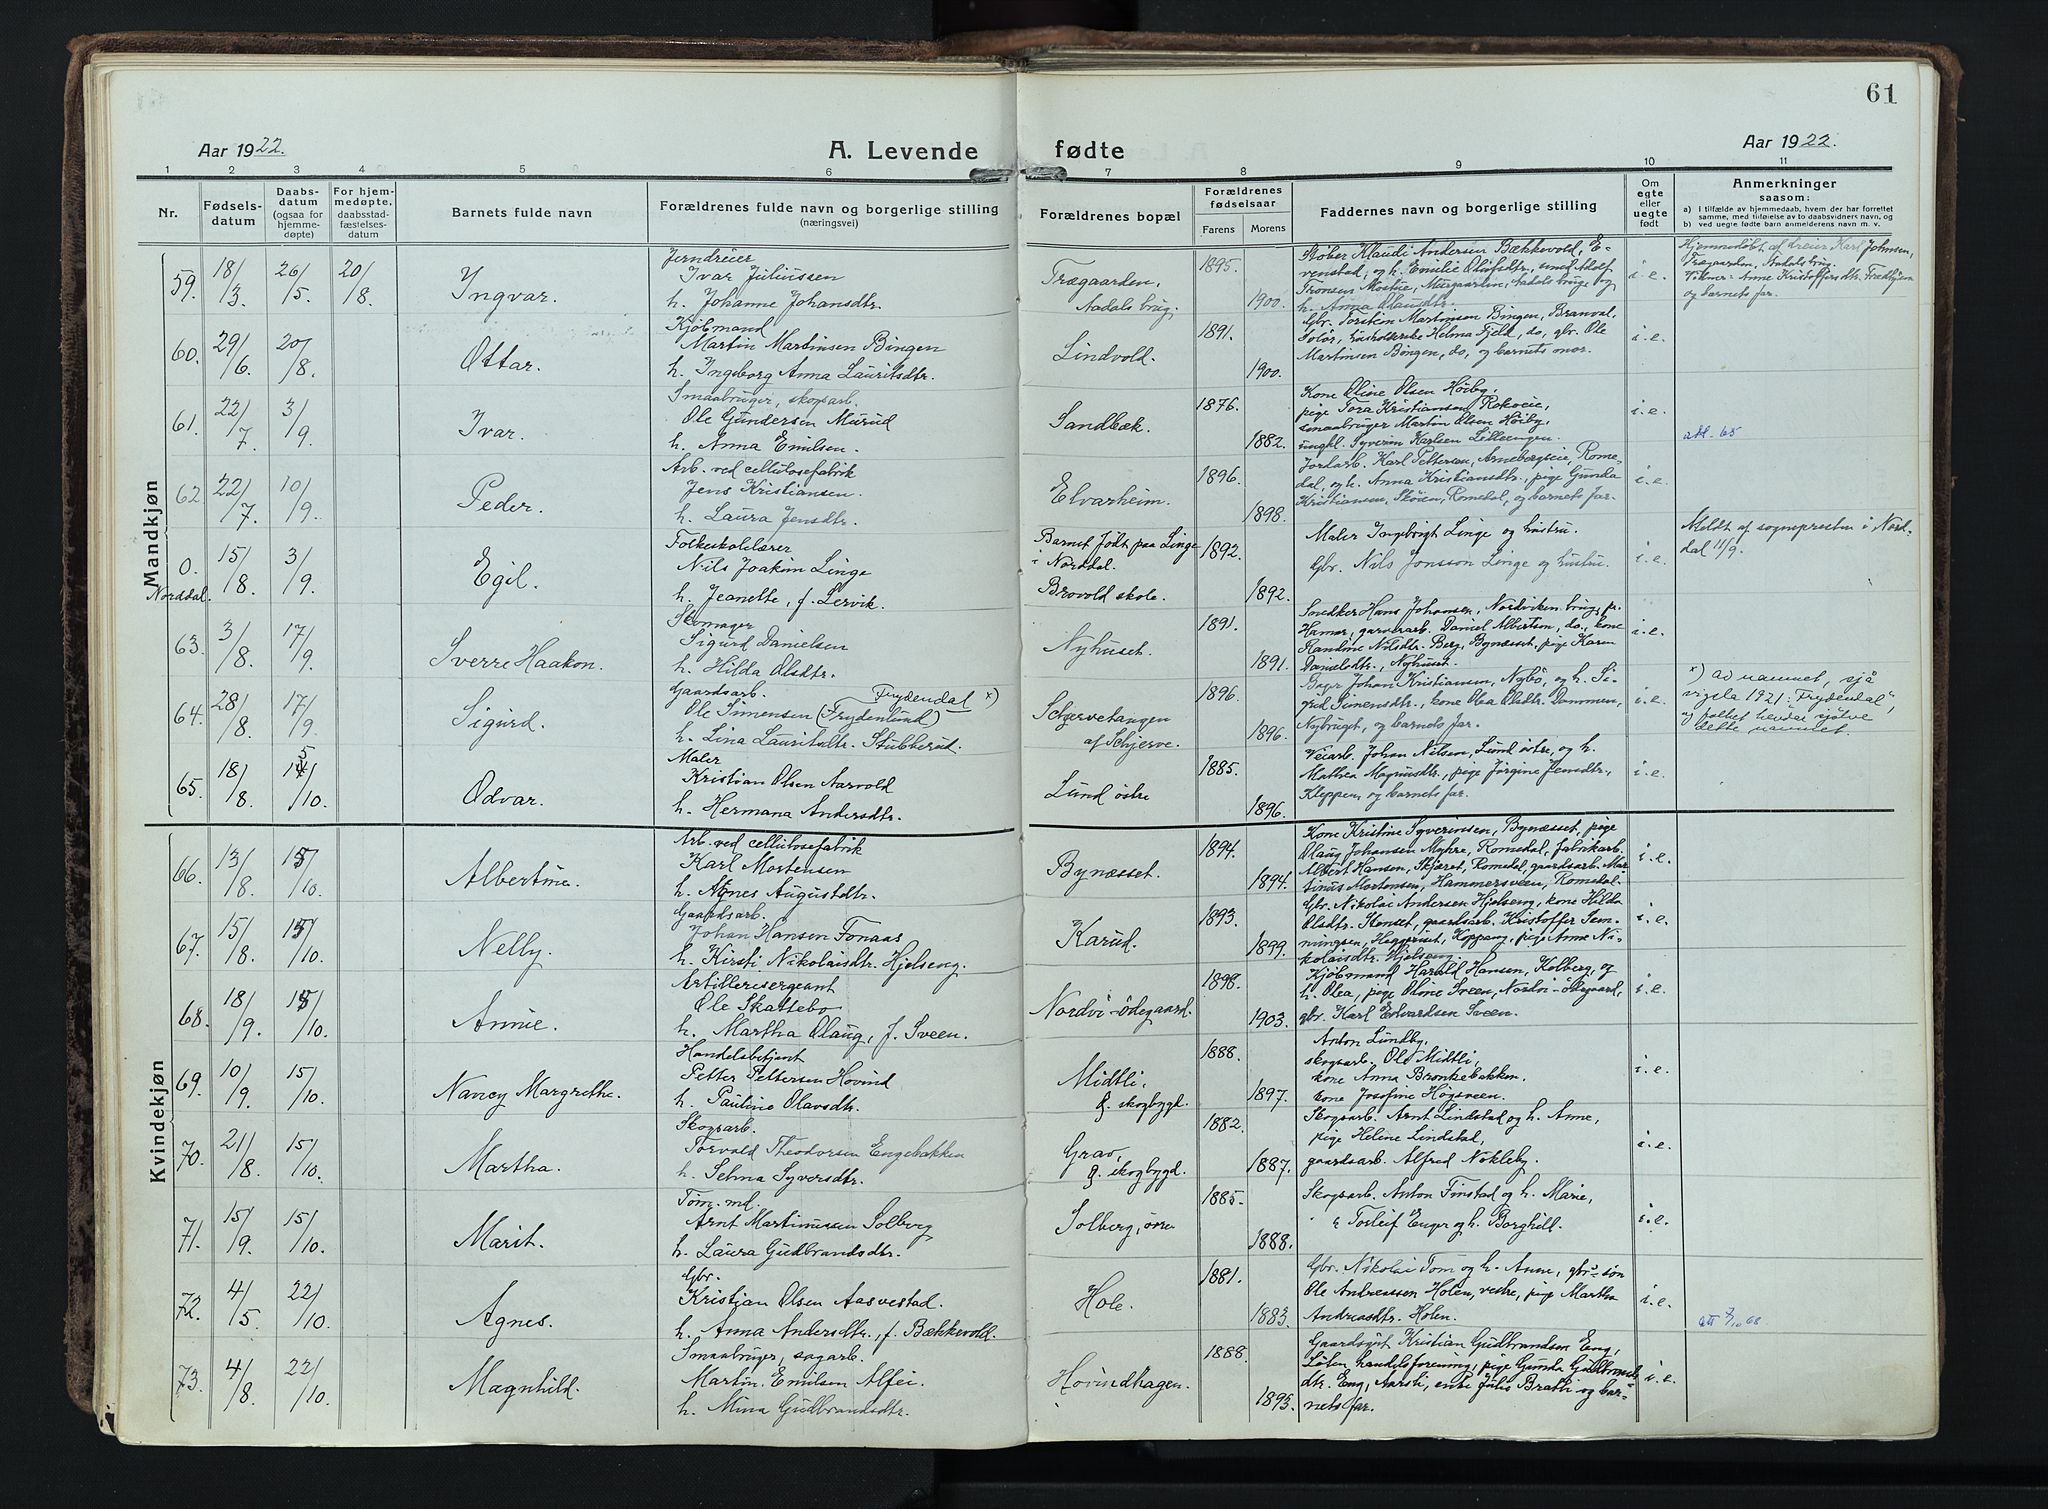 61
Aar 1922.
A. Levende
fødte
Aar 1922.
1 2 3 4 5 6 7 8 9 10 11
Nr.
Fødselsdatum
Daabsdatum (ogsaa for hjemmedøpte)
For hjemmedøpte, daabsstadfæstelsesdatum
Barnets fulde navn
Forældrenes fulde navn og borgerlige stilling
(næringsvei)
Forældrenes bopæl
Forældrenes fødselsaar
Farens Morens
Faddernes navn og borgerlige stilling
Om egte eller uegte født
Anmerkninger
saasom:
a) i tilfælde av hjemmedaab, hvem der har forrettet
samme, med tilføielse av to daabsvidners navn, og
b) ved uegte fødte barn anmelderens navn m. v.
Mandkjøn
59. 18/3 26/5 20/8 Ingvar.
Jerndreier
Ivar Juliussen
h. Johanne Johansdtr.
Trægaarden,
Aadals brug.
1895.
1900.
Støber Klaudi Andersen Bækkevold, E-
venstad, og h. Emilie Olufsdtr, smed Adolf
Tronsen Mostue, Murgaarden, Aadals brug og
h. Anna Olausdtr.
i.e.
Hjemmedøbt af dreier Karl Johnsen,
Trægaarden, Aadals brug.
Vidner: Anne Kristoffersdtr. Fredhjem
og barnets far.
60. 29/6 20/8 Ottar.
Kjøbmand
Martin Martinsen Bingen
h. Ingeborg Anna Lauritsdtr.
Lindvold.
1891.
1900.
Gbr. Torstein Martinsen Bingen, Branval,
Solør, husholderske Helma Fjeld, do, gbr. Ole
Martinsen Bingen, do, og barnets mor.
i.e.
61. 22/7 3/9 Ivar.
Smaabruger, skogsarb.
Ole Gundersen Murud
h. Anna Emilsen.
Sandbæk.
1876.
1882.
Kone Oline Olsen Høiby,
pige Tora Kristiansen Rokveie,
smaabruger Martin Olsen Høiby,
ungkl. Syverin Karlsen Lilleengen.
i.e.
att. 65
62. 22/7 10/9 Peder.
Arb. ved cellulosefabrik
Jens Kristiansen.
h. Laura Jensdtr.
Elvarheim.
1896.
1898.
Jordarb. Karl Pettersen, Arnebergseie, Rome-
dal, og h. Anna Kristiansdtr., pige Gunda
Kristiansen, Skøien, Romedal, og barnets far.
i.e.
0. Norddal. 15/8 3/9 Egil.
Folkeskolelærer
Nils Joakim Linge
h. Jeanette, f. Lervik.
Barnet født paa Linge
i Norddal.
Brovold skole.
1892.
1892.
Maler Ingebrigt Linge og hustru.
Gbr. Nils Jonsson Linge og hustru.
i.e.
Meldt af sognepresten i Nord-
dal 11/9.
63. 3/8 17/9 Sverre Haakon.
Skomager
Sigurd Danielsen
h. Hilda Olsdtr.
Nyhuset.
1891.
1891.
Snedker Hans Johansen, Nordviken brug, pr.
Hamar, garverarb. Daniel Albertsen, do., kone
Randine Nilsdtr. Berg, Bynæsset, pige Karen
Danielsdtr., Nyhuset.
i.e.
64. 28/8 17/9 Sigurd.
Gaardsarb. Frydendal x)
Ole Simensen (Frydenlund)
h. Lina Lauritsdtr. Stubberud.
Schjervetangen
af Schjerve.
1896.
1896.
Bager Johan Kristiansen, Nybø, og h. Si-
grid Simensdtr., kone Olea Olsdtr. Dammen,
Nybruget, og barnets far.
i.e.
x) av namnet, sjå
vigsla 1921: "Frydendal",
og folket hevdar sjølve
dette namnet.
65. 18/8 15/10 Odvar.
Maler
Kristian Olsen Aarvold
h. Hermana Andersdtr.
Lund østre
1885.
1896.
Veiarb. Johan Nilsen, Lund østre, og h.
Mathea Magnusdtr., pige Jørgine Jensdtr.,
Kleppen, og barnets far.
i.e.
Kvindekjøn
66. 13/8 15/10 Albertine.
Arb. ved cellulosefabrik
Karl Mortensen
h. Agnes Augustdtr.
Bynæsset.
1894.
1894.
Kone Kristine Syverinsen, Bynæsset, pige
Olaug Johansen Myhre, Romedal, fabrikarb.
Albert Hansen, Skjæret, Romedal, gaardsarb. Mar-
tinus Mortensen, Hammersveen, Romedal.
i.e.
67. 15/8 15/10 Nelly.
Gaardsarb.
Johan Hansen Fonaas
h. Kirsti Nikolaisdtr. Hjelseng.
Karud.
1893.
1899.
Gbr. Nikolai Andersen Hjelseng, kone Hilda
Olsdtr. Konset, gaardsarb. Kristoffer Sem-
mingsen, Haggeriset, Koppang, pige Anne Ni-
kolaisdtr. Hjelseng.
i.e.
68. 18/9 15/10 Annie.
Artillerisergeant
Ole Skattebo
h. Martha Olaug, f. Sveen.
Nordvi-ødegaard.
1898.
1903.
Kjøbmand Harald Hansen, Kolberg, og
h. Olea, pige Oline Sveen, Nordvi-ødegaard,
gbr. Karl Edvardsen Sveen.
i.e.
69. 10/9 15/10 Nancy Margrethe.
Handelsbetjent
Petter Pettersen Hovind
h. Pauline Olavsdtr.
Midtli,
ø. skogbygd.
1888.
1897.
Anton Lundby,
skogsarb. Ole Midtli,
kone Anna Bronkebakken.
kone Josefine Høgsveen.
i.e.
70. 21/8 15/10 Martha.
Skogsarb.
Torvald Theodorsen Engebakken
h. Selma Syversdtr.
Grav,
ø. skogbygd.
1882.
1887.
Skogsarb. Arnt Lindstad og h. Anne,
pige Helene Lindstad,
gaardsarb. Alfred Nokleby.
i.e.
71. 15/9 15/10 Marit.
Tøm. md.
Arnt Martinussen Solberg
h. Laura Gudbrandsdtr.
Solberg, øvre
1885.
1888.
Skogsarb. Anton Finstad og h. Marie,
" Torleif Enger og h. Borghild.
i.e.
72. 4/5 22/10 Agnes.
Gbr.
Kristian Olsen Aasvestad.
h. Anna Andersdtr., f. Bækkevold.
Hole.
1881.
1883.
Gbr. Nikolai Tom og h. Anne, gbr's søn
Ole Andreassen Holen, vestre, pige Martha
Andreasdtr. Holen.
i.e.
att 2/10 68
73. 4/8 22/10 Magnhild.
Smaabruger, sagarb.
Martin Emilsen Alfei
h. Mina Gudbrandsdtr.
Hovindhagen.
1888.
1893.
Gaardsgut Kristian Gudbrandsen Eng,
Løten handelsforening, pige Gunda Gudbrands-
dtr. Eng, Aarsli, enke Julie Bratli og bar-
nets far.
i.e.